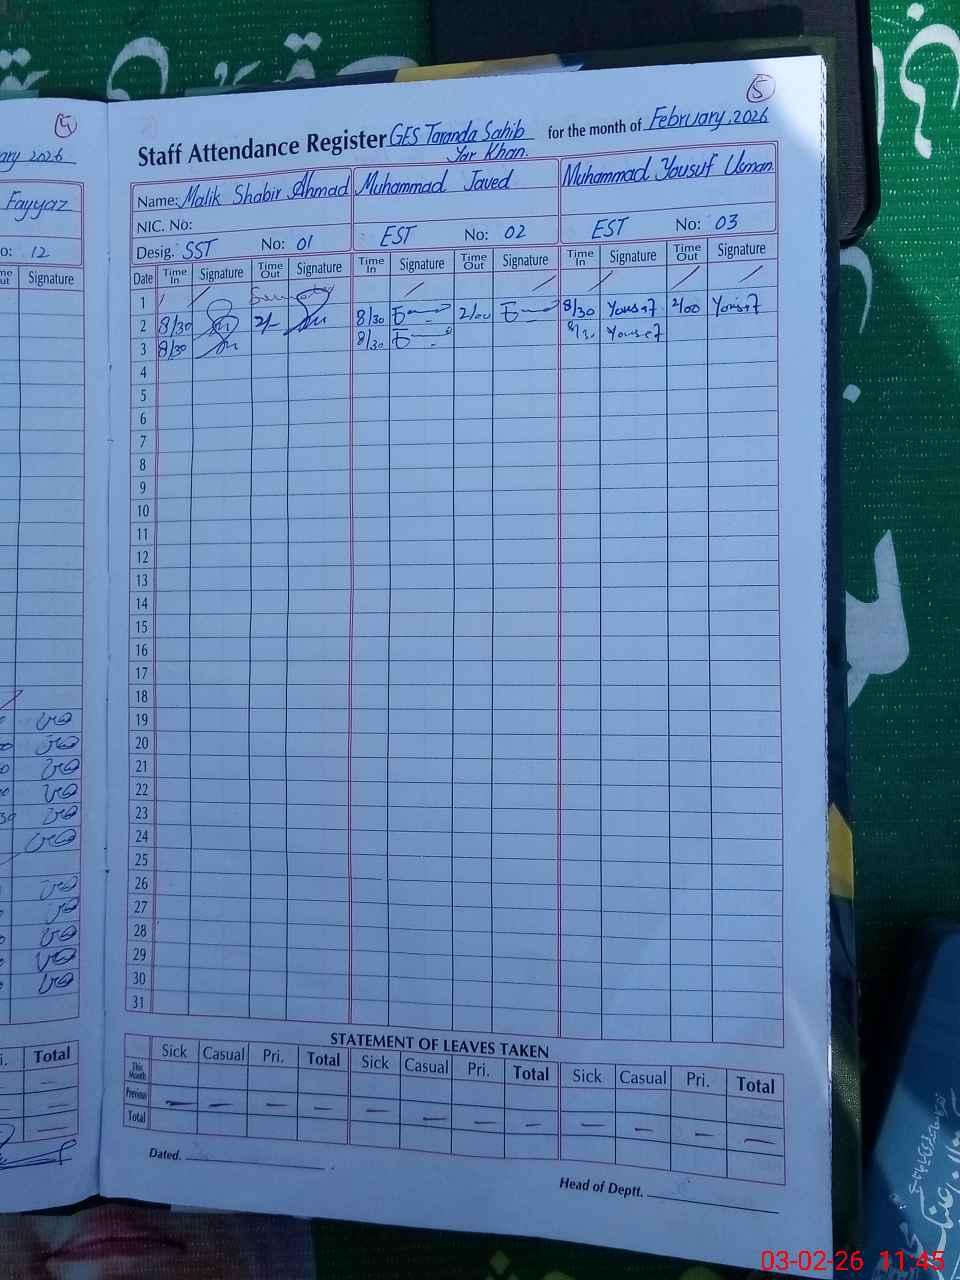 4
5
ary 2026
Staff Attendance Register GES Taranda Sahib Yar Khan. for the month of February, 2026
Fayyaz
Name: Malik Shabir Ahmad Muhammad Javed Muhammad Yousuf Usman
NIC. No:
o: 12
Desig. SST No: 01 EST No: 02 EST No: 03
Signature
Date Time In Signature Time Out Signature Time In Signature Time Out Signature Time In Signature Time Out Signature
1 Sunday
2 8/30 2/- 8/30 2/00 8/30 Yousaf 2/00 Yousaf
3 8/30 8/30 8/3. Yousaf
4
5
6
7
8
9
10
11
12
13
14
15
16
17
18
19
20
21
22
23
24
25
26
27
28
29
30
31
STATEMENT OF LEAVES TAKEN
i. Total
Sick Casual Pri. Total Sick Casual Pri. Total Sick Casual Pri. Total
This Month
Previous
Total
Dated.
Head of Deptt.
03-02-26 11:45